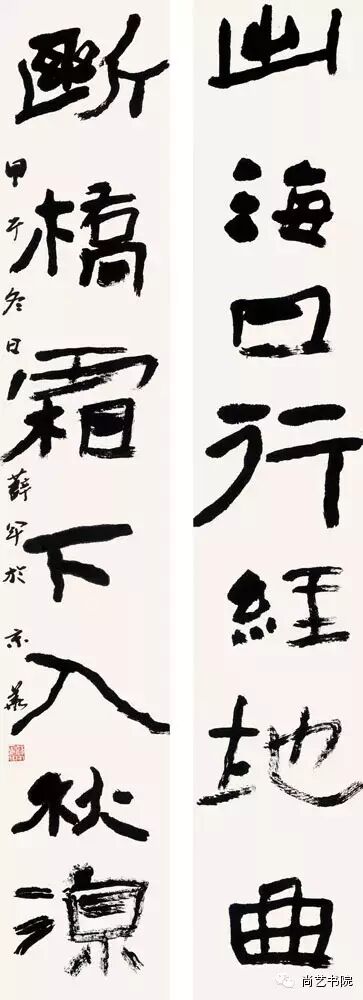 出海口行經地曲
斷橋霜下入秋涼
甲午冬日薛軍於京華
尚艺书院